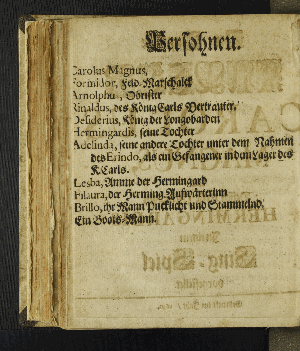 Persohnen.
Carolus Magnus,
Formidor, Feld-Marschalck
Arnolphus, Obrister
Rinaldus, des König Carls Vertrauter,
Desiderius, König der Longobarden
Hermingardis, seine Tochter
Adelinda, seine andere Tochter unter dem Nahmen
des Erindo, als ein Gefangener in dem Lager des
K. Carls.
Lesba, Amme der Hermingard
Filaura, der Herming. Aufwärterinn
Brillo, ihr Mann Pucklicht und Stammelnd.
Ein Boots-Mann.